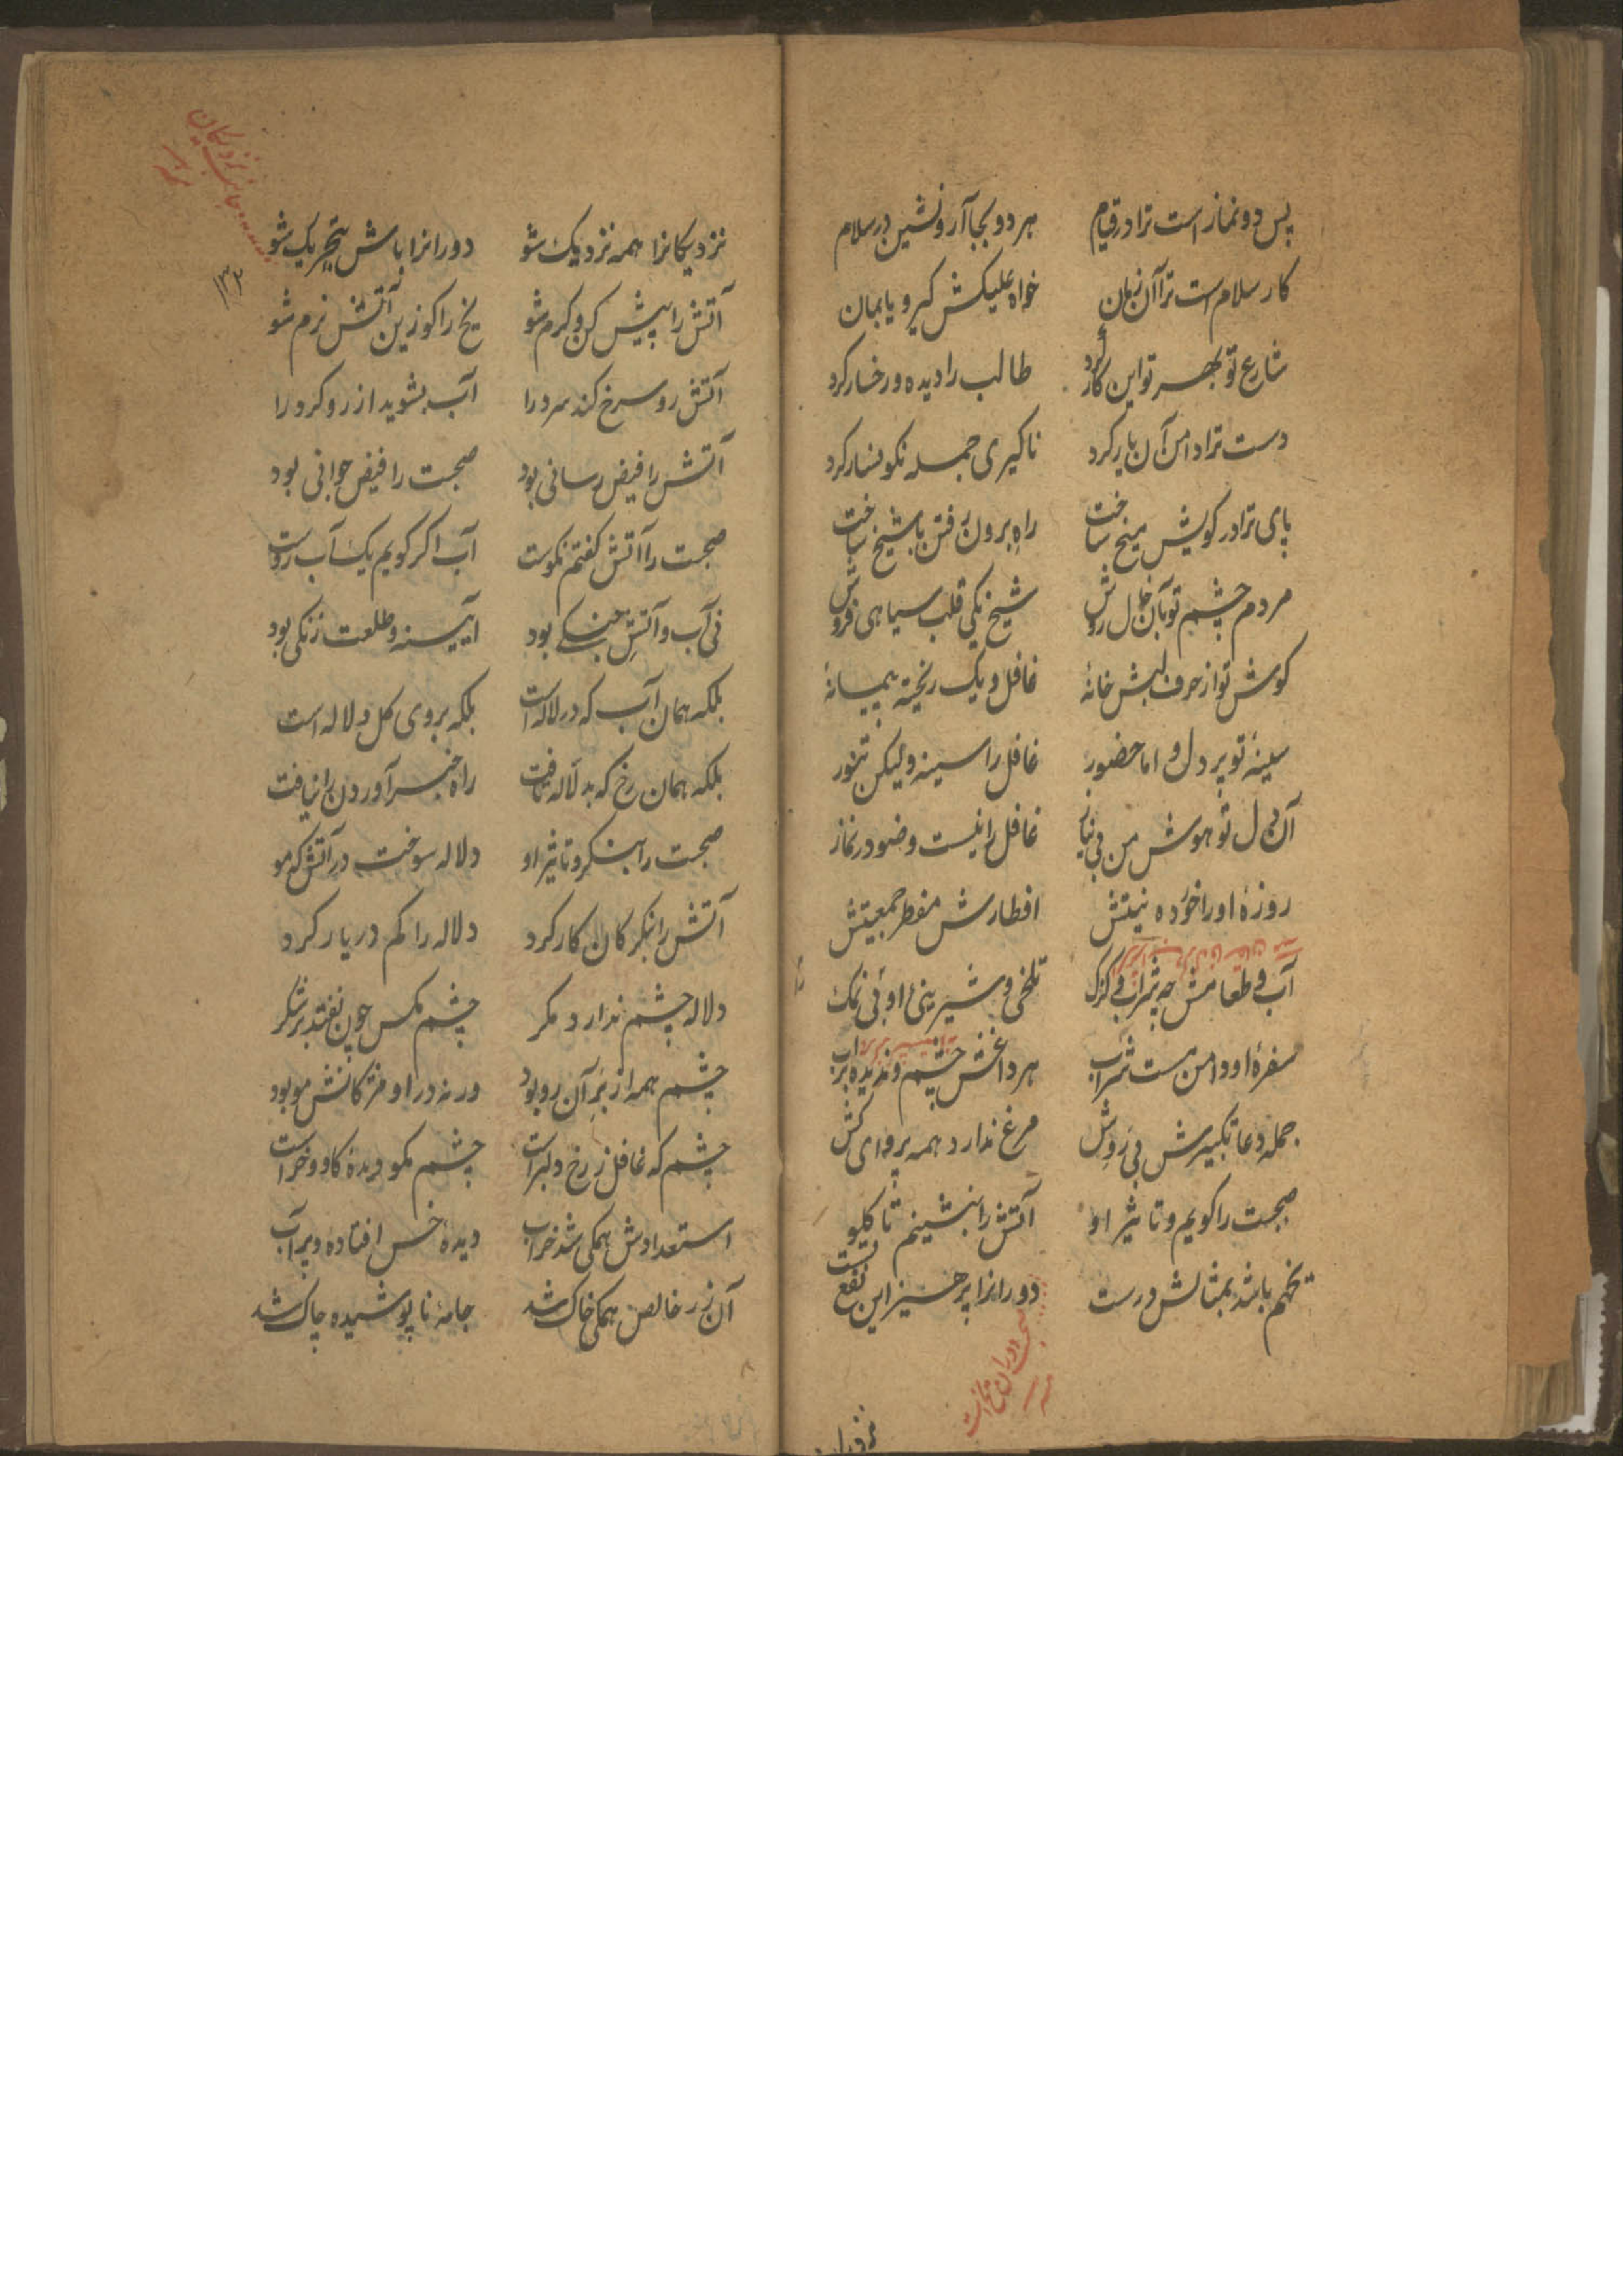 پس دو نماز است ترا در قیام هر دو بجا آر و نشین در سلام
کار سلام است ترا آن زمان خواه علیکش کیر و یا بمان
شارع تو بهر تو این کار کرد طالب را دیده و رخسار کرد
دست ترا دامن آن یار کرد تا کیری جمله نکونسار کرد
پای ترا در کویش میخ ساخت راه برون رفتن با شیخ ساخت
مردم چشم تو بآن خال روش شیخ یکی قلب سیاهی فروش
کوش تو از حرف لبش خانهٔ غافل و یک ریخته پیمانهٔ
سینهٔ تو پر دل و اما حضور غافل را سینه ولیکن تنور
آن دل تو هوش من بی نیاز غافل را نیست وضو در نماز
روزهٔ او را خورده نیتش افطارش مفطر جمعیتش
آب و طعامش چه شراب و کزک تلخی و شیرینی او بی نمک
سفرهٔ او دامن مست شراب هر داغش چشم و ندیده بر آب
جمله دعا تکبیرش بی روش مرغ ندارد همه پروای کش
صحبت را کویم و تاثیر او آتش را بنشینم تا کلو
تخم باشد بمثالش درست دورانرا پرهیز این نفع تست
نزدیکانرا همه نزدیک شو دورانرا باش بتحریک شو
آتش را پیش کن و کرم شو یخ را کو زین آتش نرم شو
آتش رو سرخ کند سرد را آب بشوید از رو کرد را
آتش را فیض رسانی بود صحبت را فیض جوانی بود
صحبت را آتش کفتم نکوست آب اکر کویم یک آب روست
فی آب و آتش جنکی بود آیینه و طلعت زنکی بود
بلکه همان آب که در لاله است بلکه بروی کل و لاله است
بلکه همان رخ که به لاله تافت راه خبر آوردن را نیافت
صحبت را بنکر و تاثیر او دلاله سوخت در آتش که مو
آتش را بنکر کان کار کرد دلاله را کم در یار کرد
دلاله چشم ندارد مکر چشم مکس چون نفتد بر شکر
چشم همه از بر آن رو بود ورنه در او مژکانش مو بود
چشم که غافل ز رخ دلبر است چشم مکو دیدهٔ کاو و خر است
استعدادش همکی شد خراب دیدهٔ خس افتاده و پر آب
آن زر خالص همکی خاک شد جامهٔ ناپوشیده چاک شد